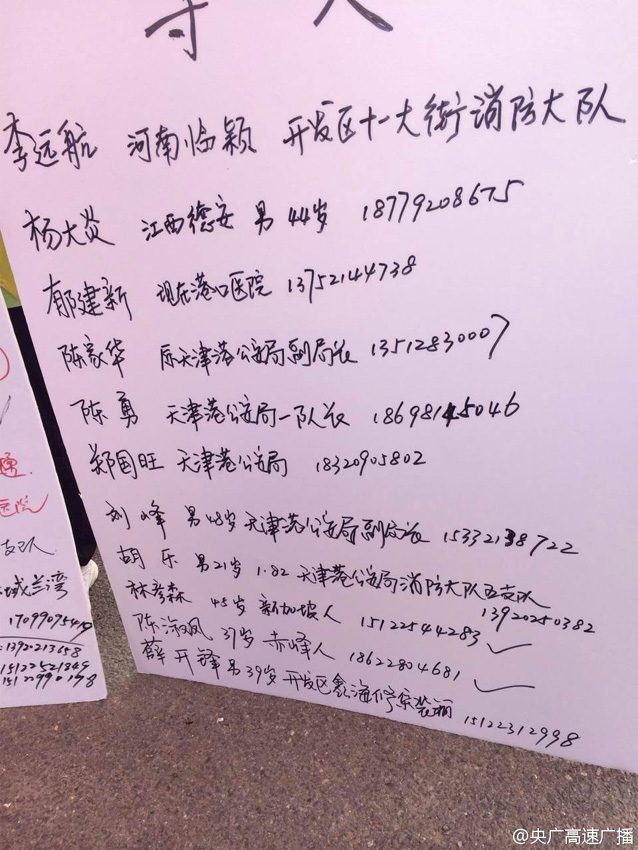 寻人
李远航 河南临颍 开发区十一大街消防大队
杨大炎 江西德安 男 44岁 18779208675
郁建新 现在港口医院 13752144738
陈家华 原天津港公安局副局长 13512830007
陈勇 天津港公安局一队长 18698145046
郑国旺 天津港公安局 18320905802
刘峰 男48岁 天津港公安局副局长 15332138722
胡乐 男21岁 1.82 天津港公安局消防大队五支队 13920250382
林彦森 45岁 新加坡人 15122544283 ✓
陈淑凤 37岁 赤峰人 18622804681 ✓
薛开锋 男39岁 开发区鑫海 装潢 15122312998
医院
支队
域兰湾
1709907547
13920213658
15122521849
15122990178
@央广高速广播